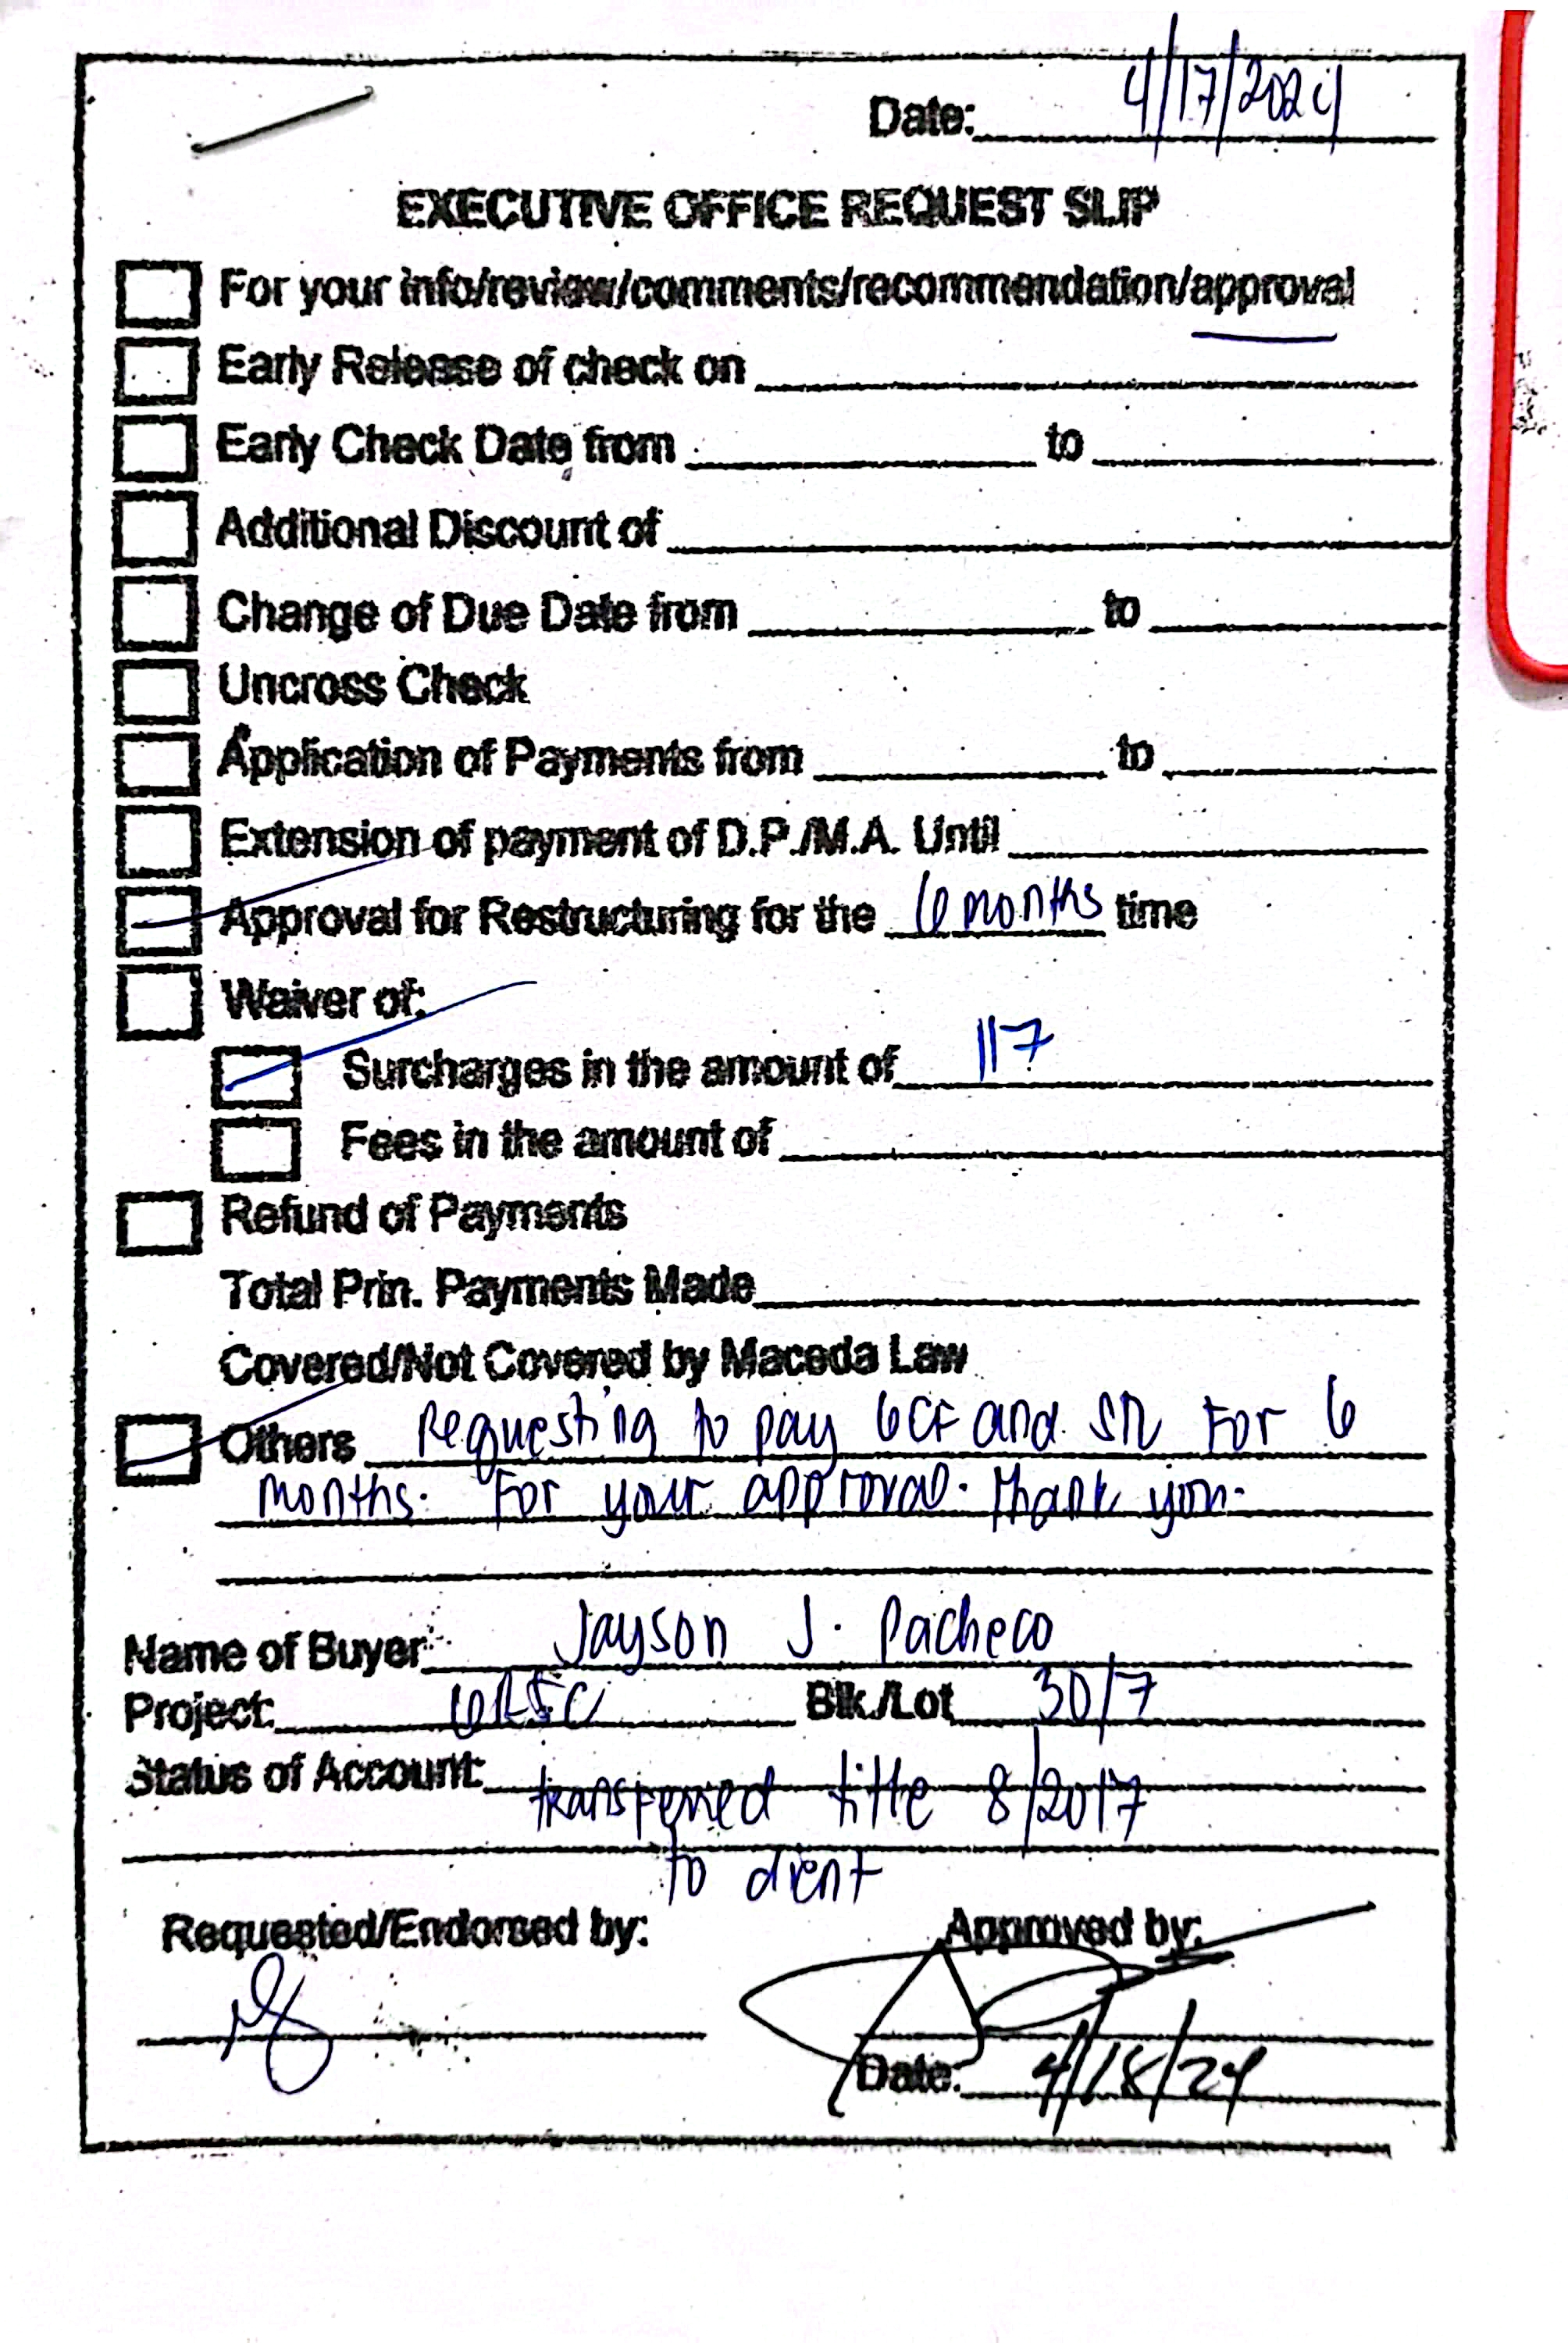 Date: 4/17/2024
EXECUTIVE OFFICE REQUEST SLIP
For your info/review/comments/recommendation/approval
Early Release of check on
Early Check Date from to
Additional Discount of
Change of Due Date from to
Uncross Check
Application of Payments from to
Extension of payment of D.P./M.A. Until
Approval for Restructuring for the 6 months time
Waiver of:
Surcharges in the amount of 117
Fees in the amount of
Refund of Payments
Total Prin. Payments Made
Covered/Not Covered by Maceda Law
Others Requesting to pay and For 6
months. For your approval. Thank you.
Name of Buyer Jayson J. Pacheco
Project: Blk./Lot 30/7
Status of Account: transferred title 8/2017
to client
Requested/Endorsed by: Approved by:
Date: 4/18/24